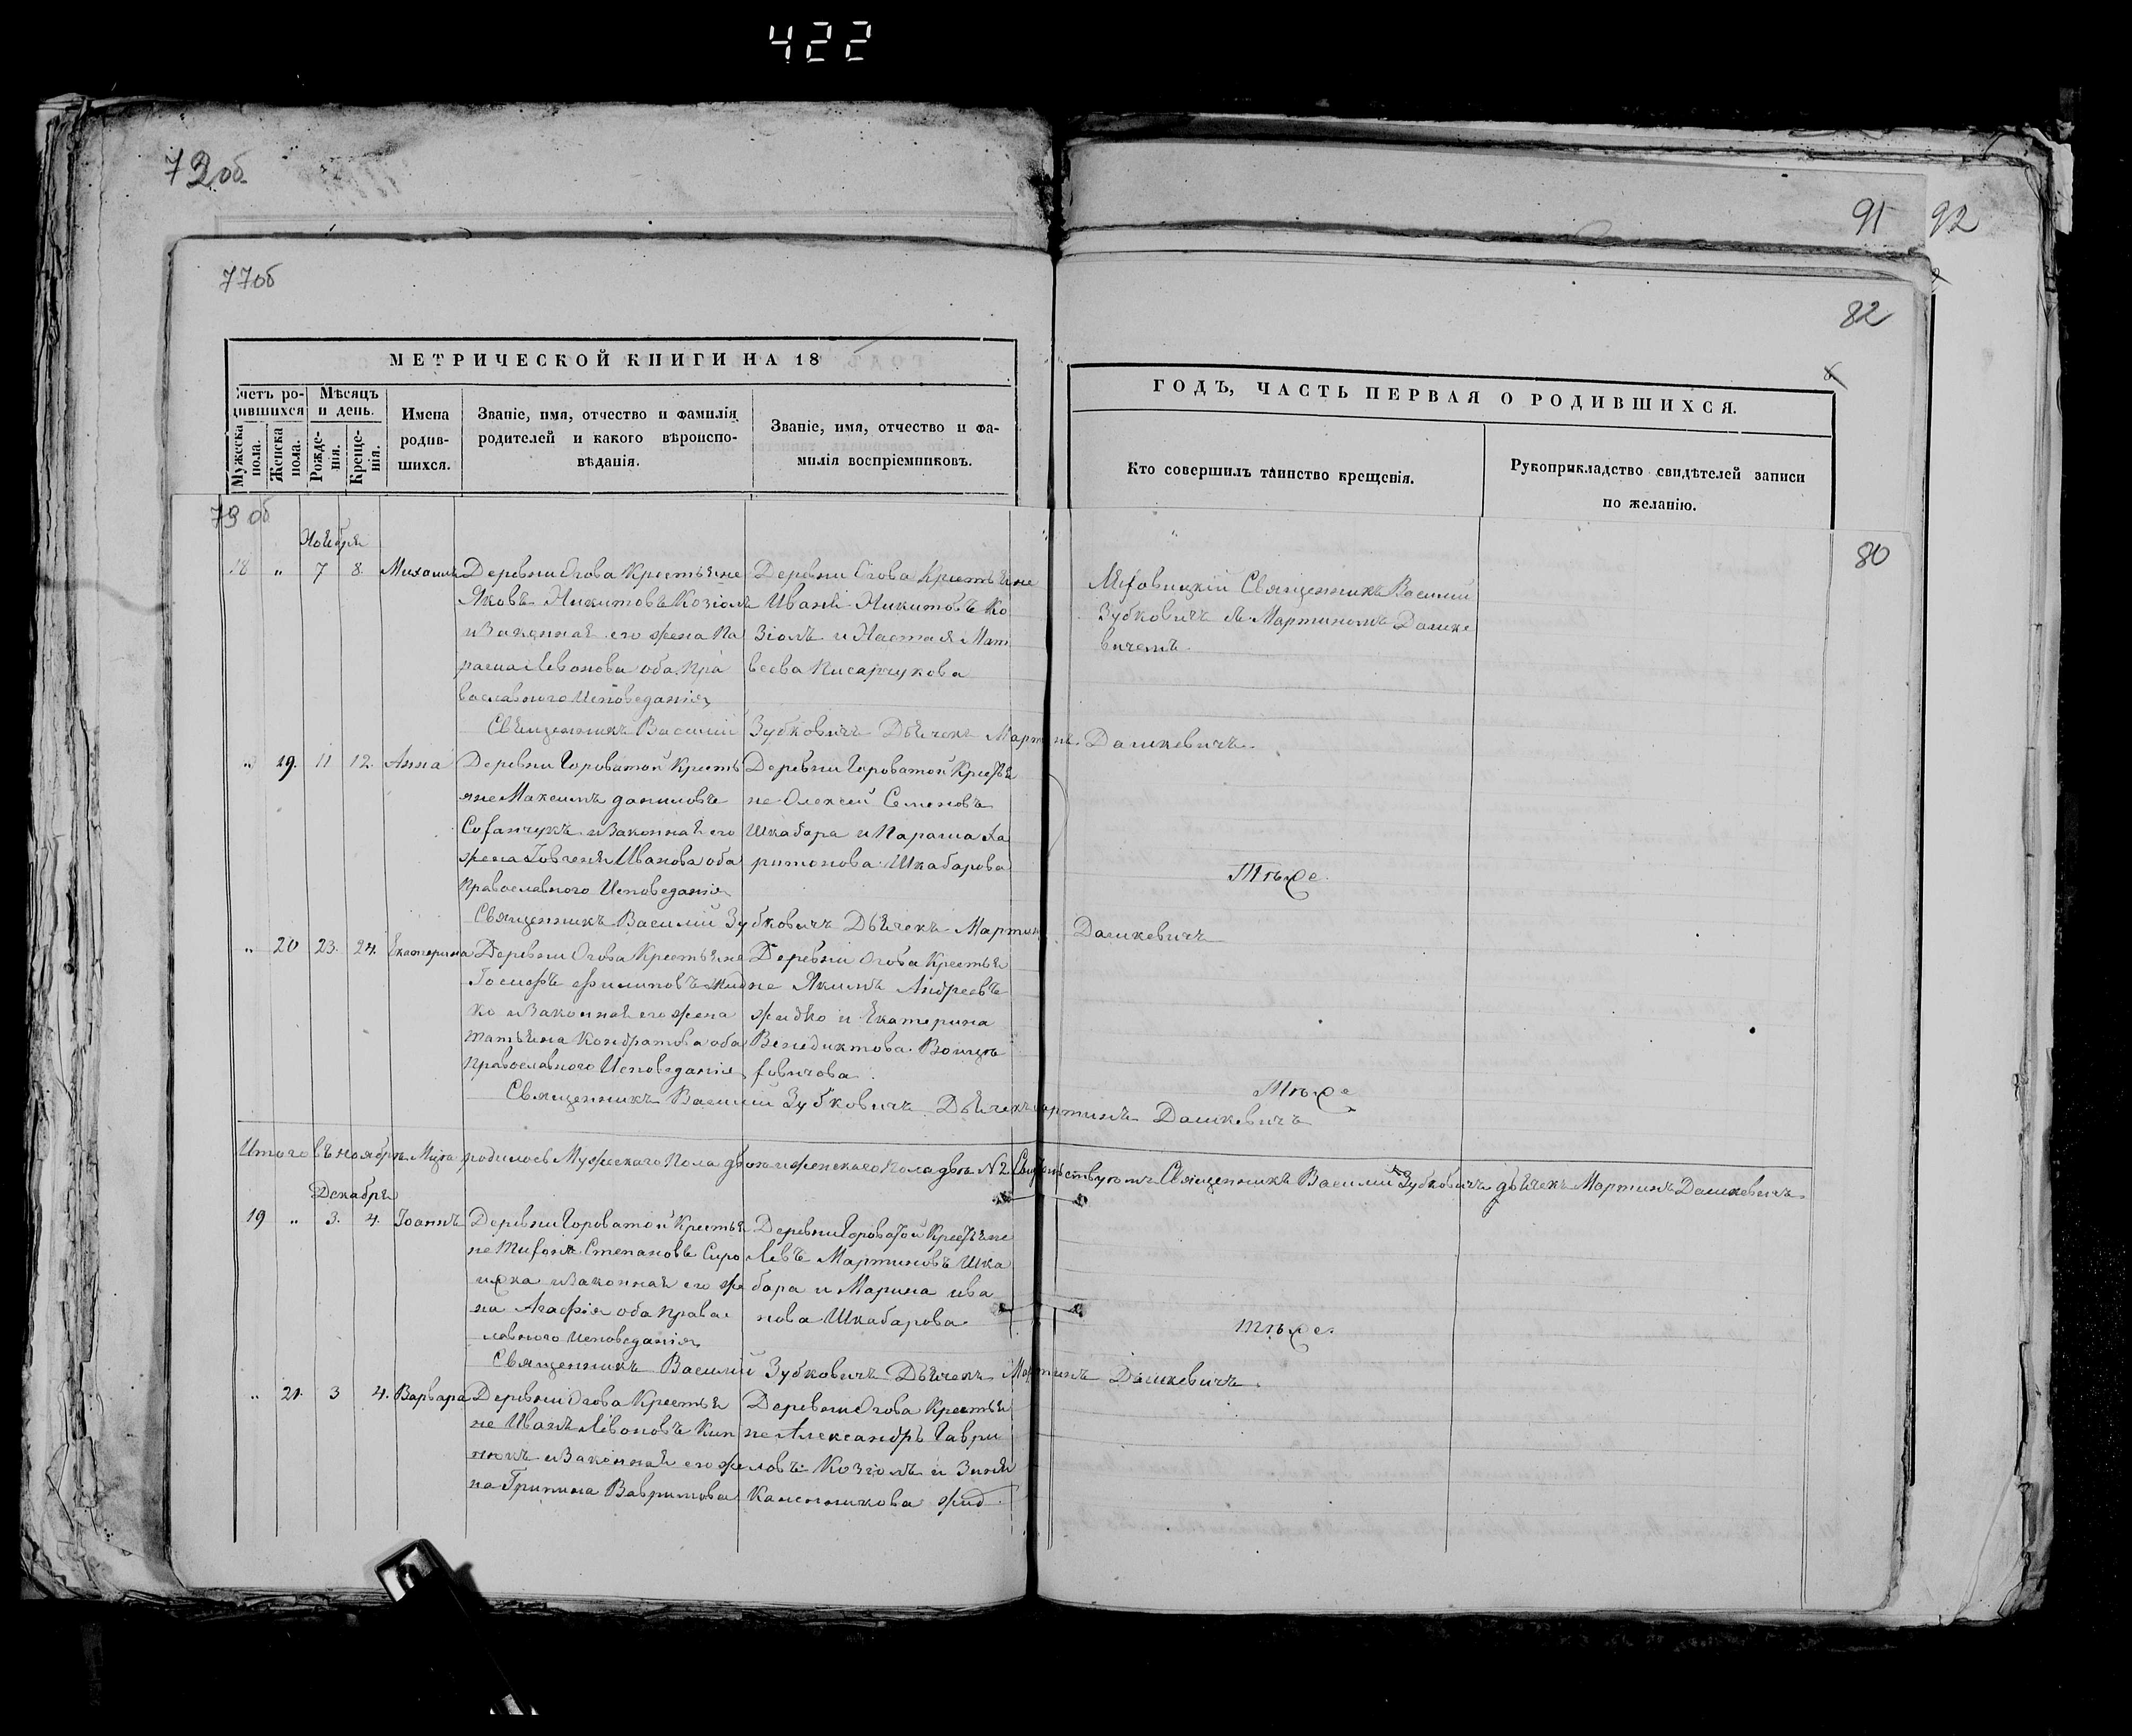 422
73 об
91 92
77об
82
МЕТРИЧЕСКОЙ КНИГИ НА 18
ГОДЪ, ЧАСТЬ ПЕРВАЯ О РОДИВШИХСЯ.
Счетъ родившихся
Мужеска пола.
Женска пола.
Мѣсяцъ и день.
Рожденія.
Крещенія.
Имена родившихся.
Званіе, имя, отчество и фамилія родителей и какого вѣроисповѣданія.
Званіе, имя, отчество и фамилія воспріемниковъ.
Кто совершилъ таинство крещенія.
Рукоприкладство свидѣтелей записи по желанію.
79 об
80
Ноября
18 " 7 8. Михаилъ
Деревни Огова Крестьяне
Яковъ Никитовъ Козіолъ
и Законная его жена Па
раша Левонова оба Пра
вославного Исповеданія
Деревни Огова Крестьяне
Иванъ Никитовъ Ко
зіолъ и Настая Мат
веева Писарчукова
Священникъ Василий
Зубковичъ съ Мартиномъ Дашке
вичемъ.
Священникъ Василий Зубковичъ Дьячекъ Мартинъ Дашкевичъ.
" 19. 11 12. Анна
Деревни Гороватой Кресть
яне Максимъ Даниловъ
и Законная его
жена Иванова оба
Православного Исповеданія
Деревни Гороватой Крестья
не Олексей Семеновъ
Шкабара и Параша Ха
ритонова Шкабарова
Тъже.
Священникъ Василий Зубковичъ Дьячекъ Мартинъ Дашкевичъ
" 20 23. 24. Екатерина
Деревни Огова Крестьяне
Іосифъ Филиповъ Жид
ко и Законная его жена
Татьяна Кондратова оба
Православного Исповеданія
Деревни Огова Крестья
не Якимъ Андреевъ
Жидко и Екатерина
Венедиктова
Тъже
Священникъ Василий Зубковичъ Дьячекъ Мартинъ Дашкевичъ
Итого въ ноябрѣ Мцѣ родилось Мужеского Пола двое и женского Пола двѣ N2 Свидѣтельствуютъ Священникъ Василий Зубковичъ дьячекъ Мартинъ Дашкевичъ.
Декабря
19 " 3. 4. Іоаннъ
Деревни Гороватой Крестья
не Степановъ
и Законная его же
на Агафія оба Правос
лавного Исповеданія
Деревни Гороватой Крестьяне
Левъ Мартиновъ Шка
бара и Марина Ива
нова Шкабарова.
Тъже.
Священникъ Василий Зубковичъ Дьячекъ Мартинъ Дашкевичъ.
" 21. 3 4. Варвара
Деревни Огова Крестья
не Иванъ Левоновъ
и Законная его же
на Грипина
Деревни Огова Крестья
не Александръ Гаври
ловъ Козіолъ и